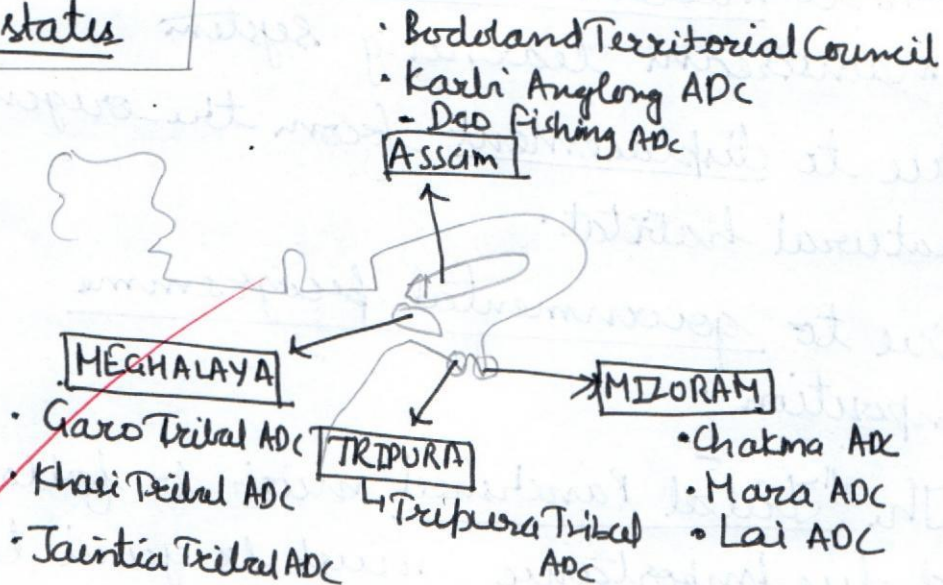 states
• Bodoland Territorial Council
• Karbi Anglong ADC
- Deo fishing ADC
Assam
MEGHALAYA
• Garo Tribal ADC
• Khasi Tribal ADC
• Jaintia Tribal ADC
TRIPURA
↳ Tripura Tribal
ADC
MIZORAM
• Chakma ADC
• Mara ADC
• Lai ADC